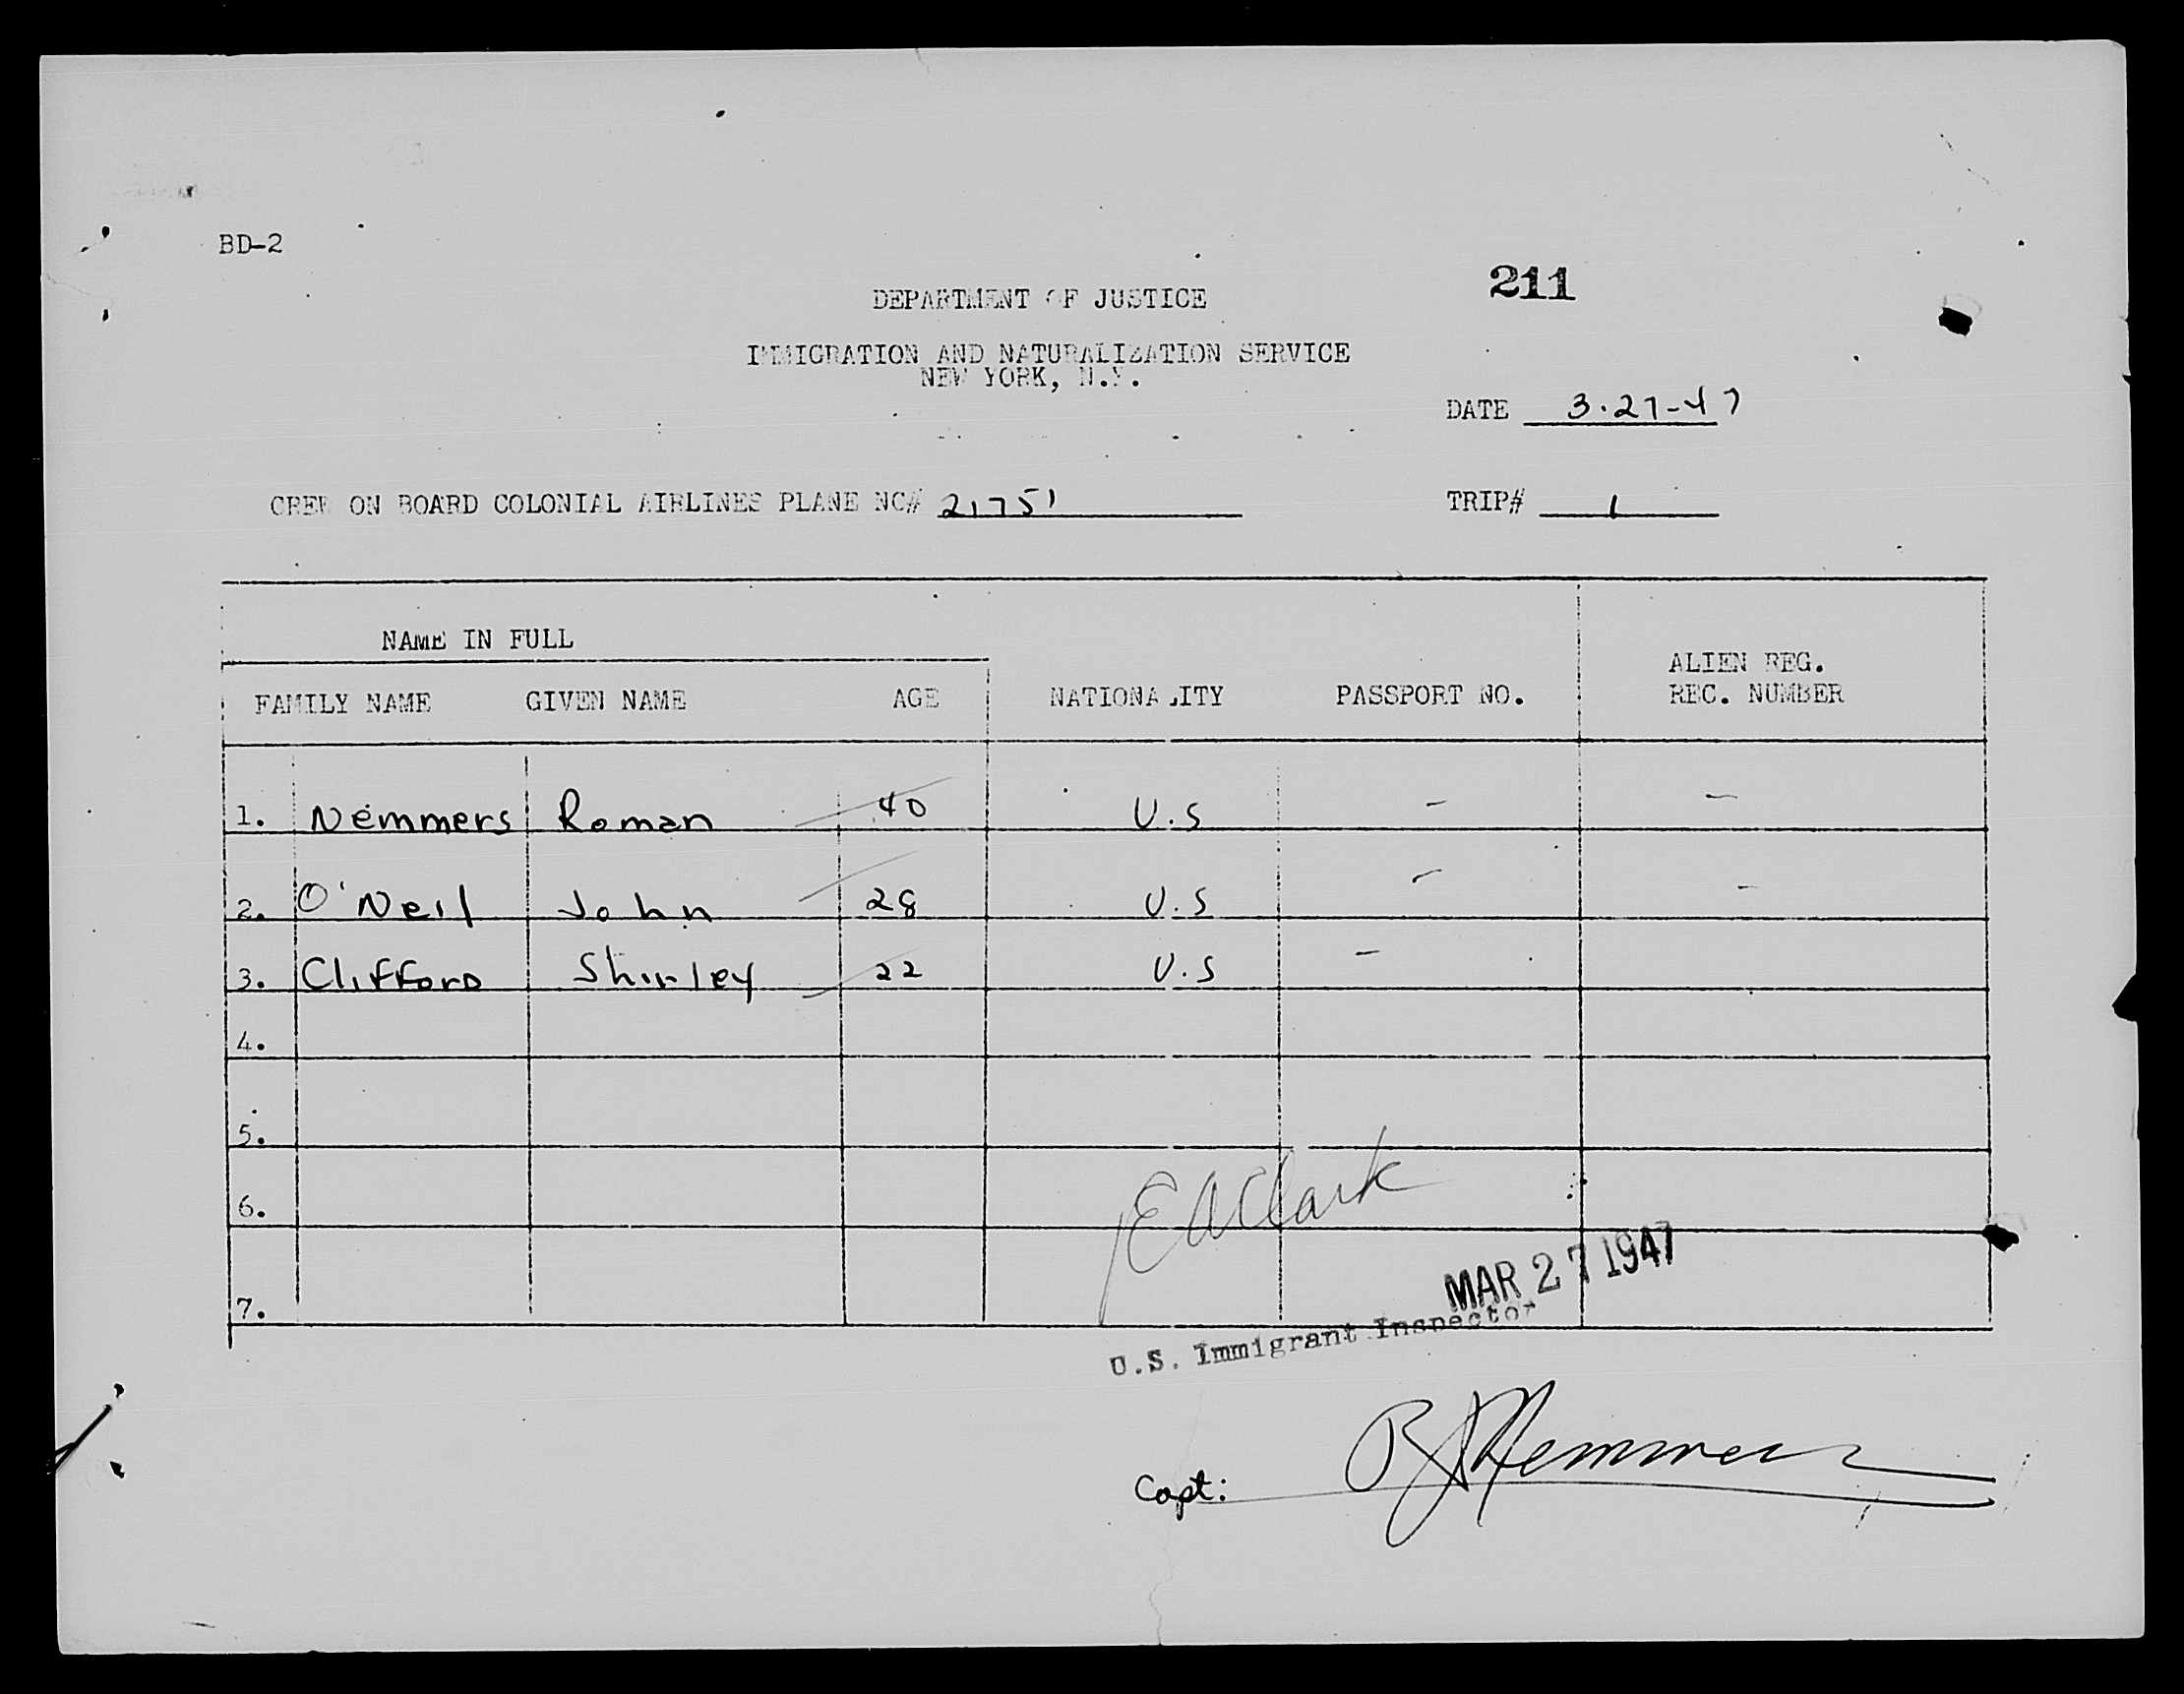 BD-2
211
DEPARTMENT OF JUSTICE
IMMIGRATION AND NATURALIZATION SERVICE
NEW YORK, N.Y.
DATE 3.27-47
CREW ON BOARD COLONIAL AIRLINES PLANE NC# 21751
TRIP# 1
NAME IN FULL
FAMILY NAME GIVEN NAME AGE NATIONALITY PASSPORT NO. ALIEN REG. REC. NUMBER
1. Nemmers Roman 40 U.S - -
2. O'Neil John 28 U.S - -
3. Clifford Shirley 22 U.S -
4.
5.
6.
7.
E A Clark
MAR 27 1947
U.S. Immigrant Inspector
Capt: R J Nemmers